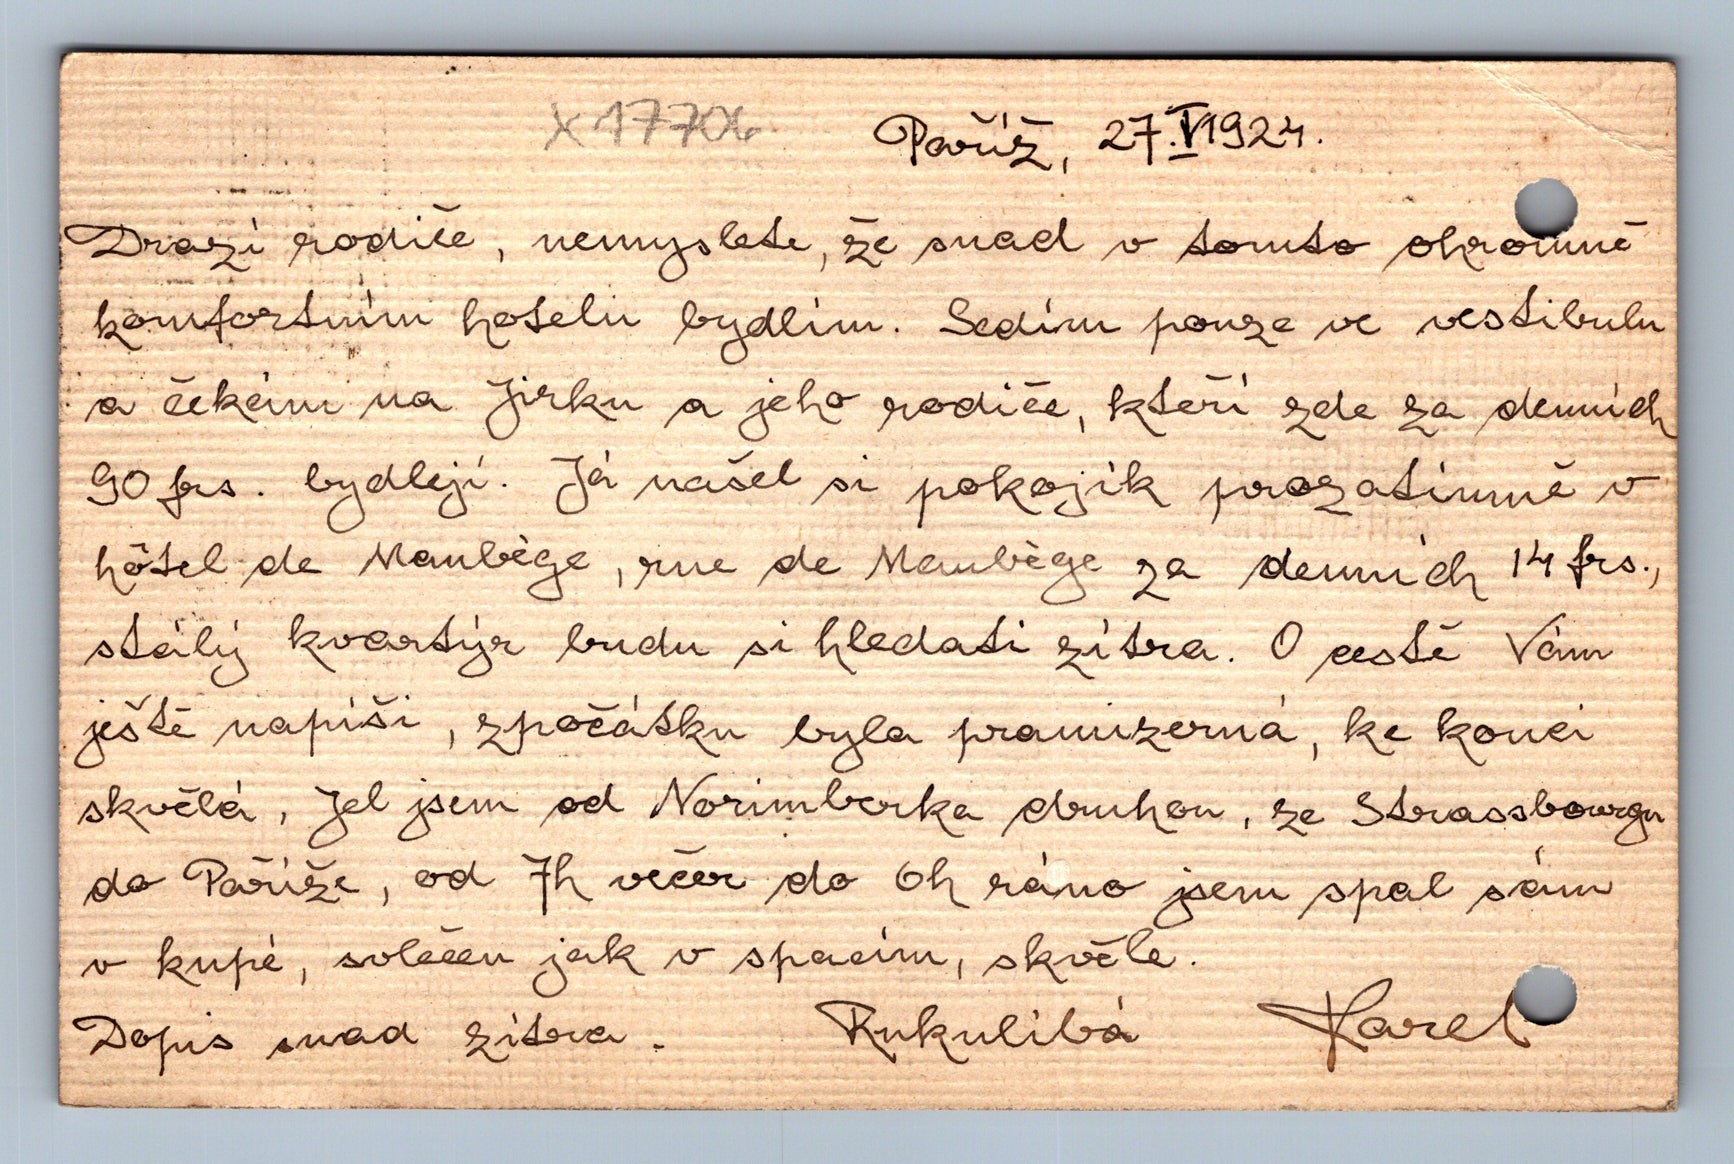 X 17706
Paříž, 27.V1924.
Drazí rodiče, nemyslete, že snad v tomto ohromně
komfortním hotelu bydlím. Sedím pouze ve vestibulu
a čekám na Jirku a jeho rodiče, kteří zde za denních
90 frs. bydlejí. Já našel si pokojík prozatímně v
hôtel de Maubège, rue de Maubège za denních 14 frs.,
stálý kvartýr budu si hledati zítra. O cestě Vám
ještě napíši, zpočátku byla pramizerná, ke konci
skvělá. Jel jsem od Norimberka druhou, ze Strassbourgu
do Paříže, od 7h večer do 6h ráno jsem spal sám
v kupé, svlečen jak v spacím, skvěle.
Dopis snad zítra. Rukulíbá Karel